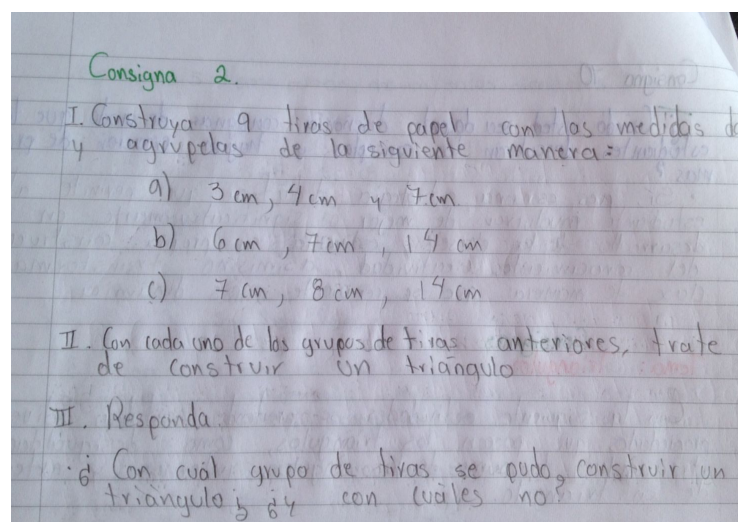 Consigna 2.
I. Construya 9 tiras de papel con las medidas
y agrupelas de la siguiente manera:
a) 3 cm, 4 cm y 7 cm
b) 6 cm, 7 cm, 14 cm
c) 7 cm, 8 cm, 14 cm
II. Con cada uno de los grupos de tiras anteriores, trate
de construir un triángulo
III. Responda
¿Con cuál grupo de tiras se pudo construir un
triangulo; ¿y con cuáles no?